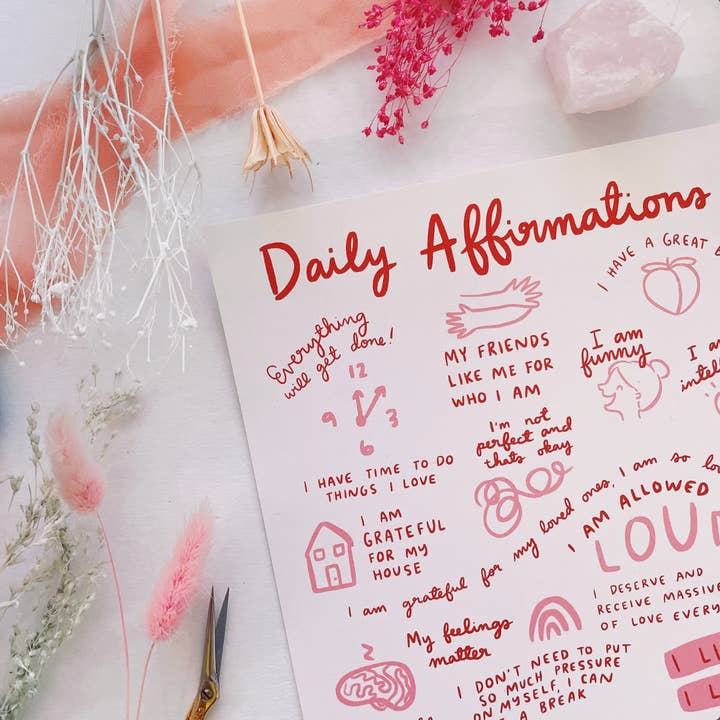 Daily Affirmations
Everything
will get done!
12
9 3
6
MY FRIENDS
LIKE ME FOR
WHO I AM
I HAVE A GREAT
I am
funny
I am
I'm not
perfect and
thats okay
I HAVE TIME TO DO
THINGS I LOVE
I AM
GRATEFUL
FOR MY
HOUSE
I am grateful for my loved ones, I am so
I AM ALLOWED
LOU
I DESERVE AND
RECEIVE MASSIVE
OF LOVE
My feelings
matter
Z
I DON'T NEED TO PUT
SO MUCH PRESSURE
ON MYSELF, I CAN
A BREAK
I
I